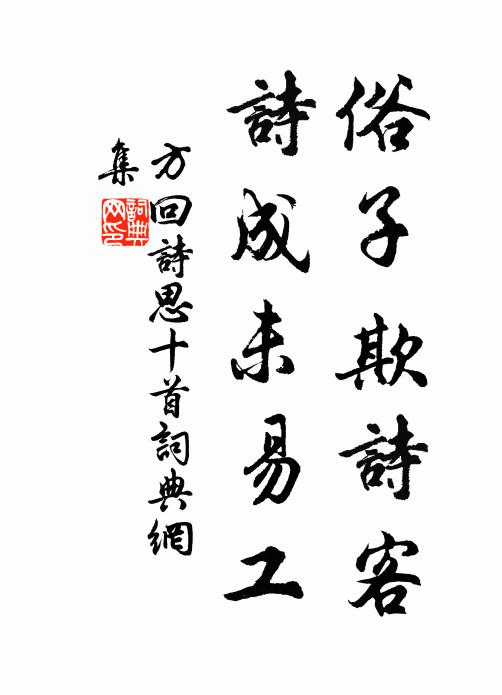 俗子欺詩客
詩成未易工
方回詩思十首詞典網
集
詞典
网印